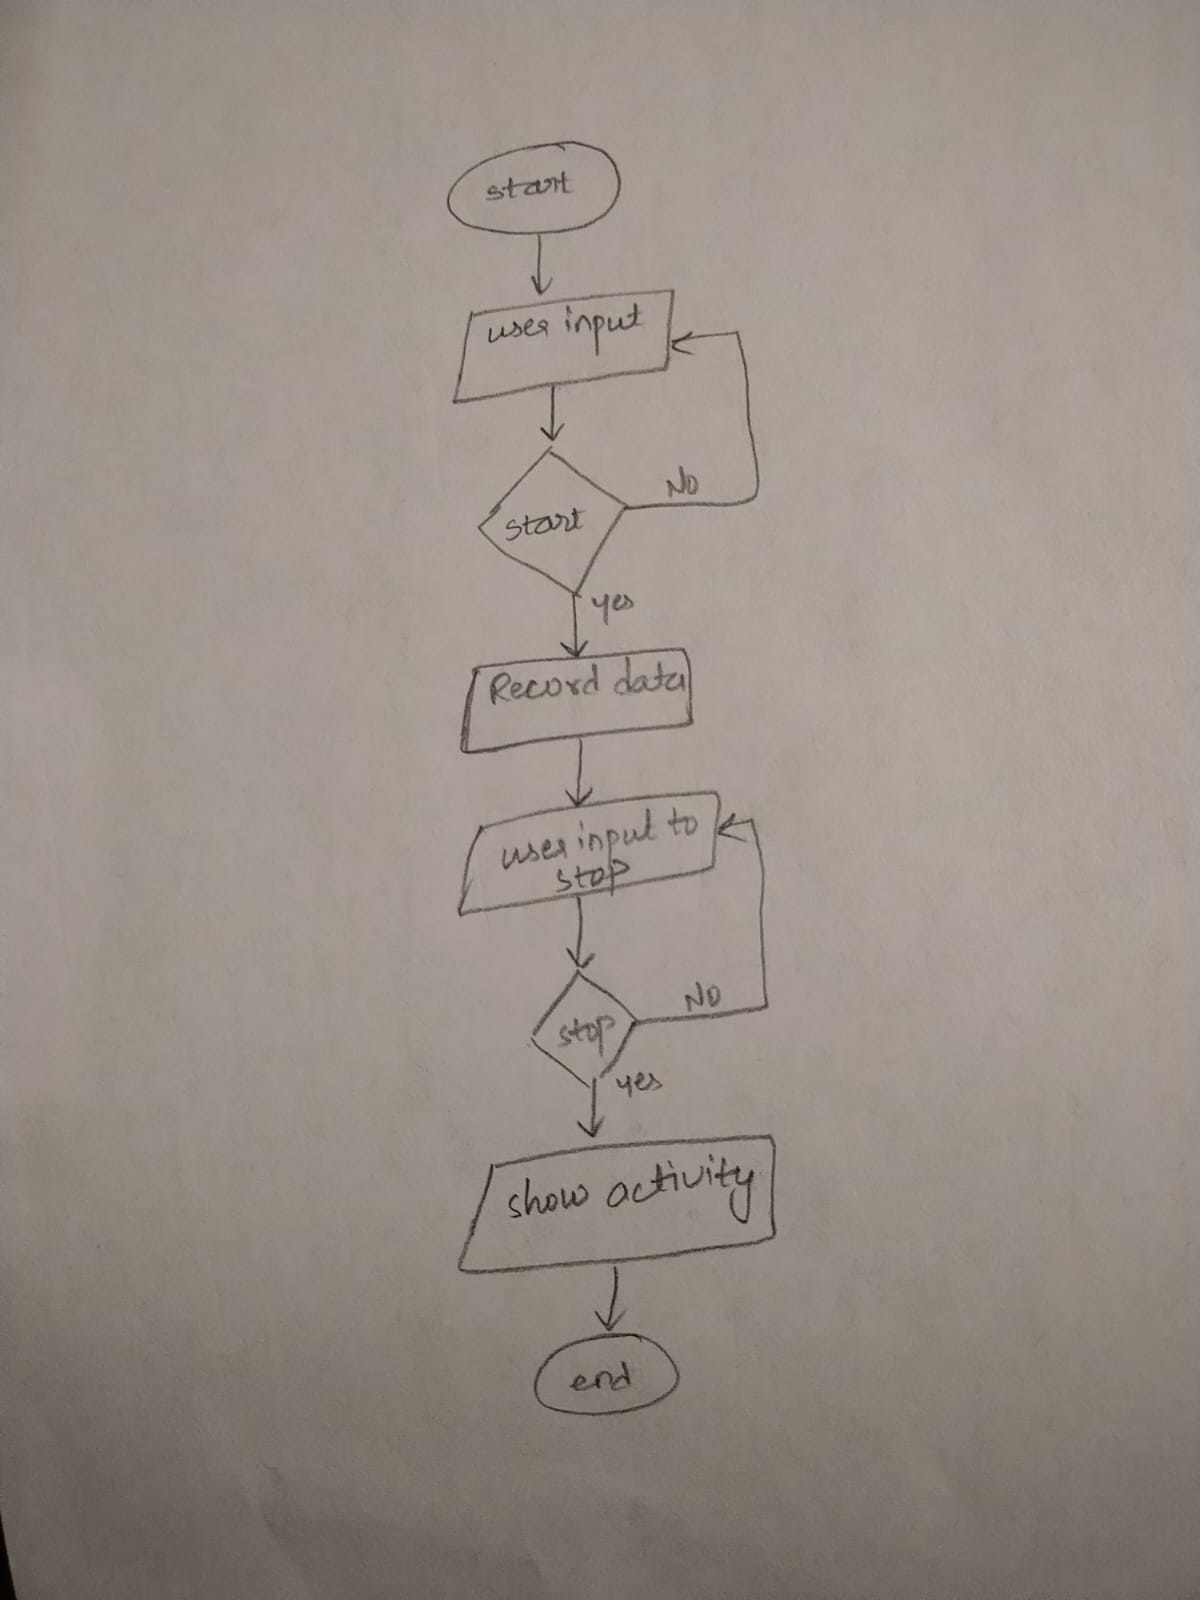 start
user input
No
start
yes
Record data
user input to
stop
No
stop
yes
show activity
end